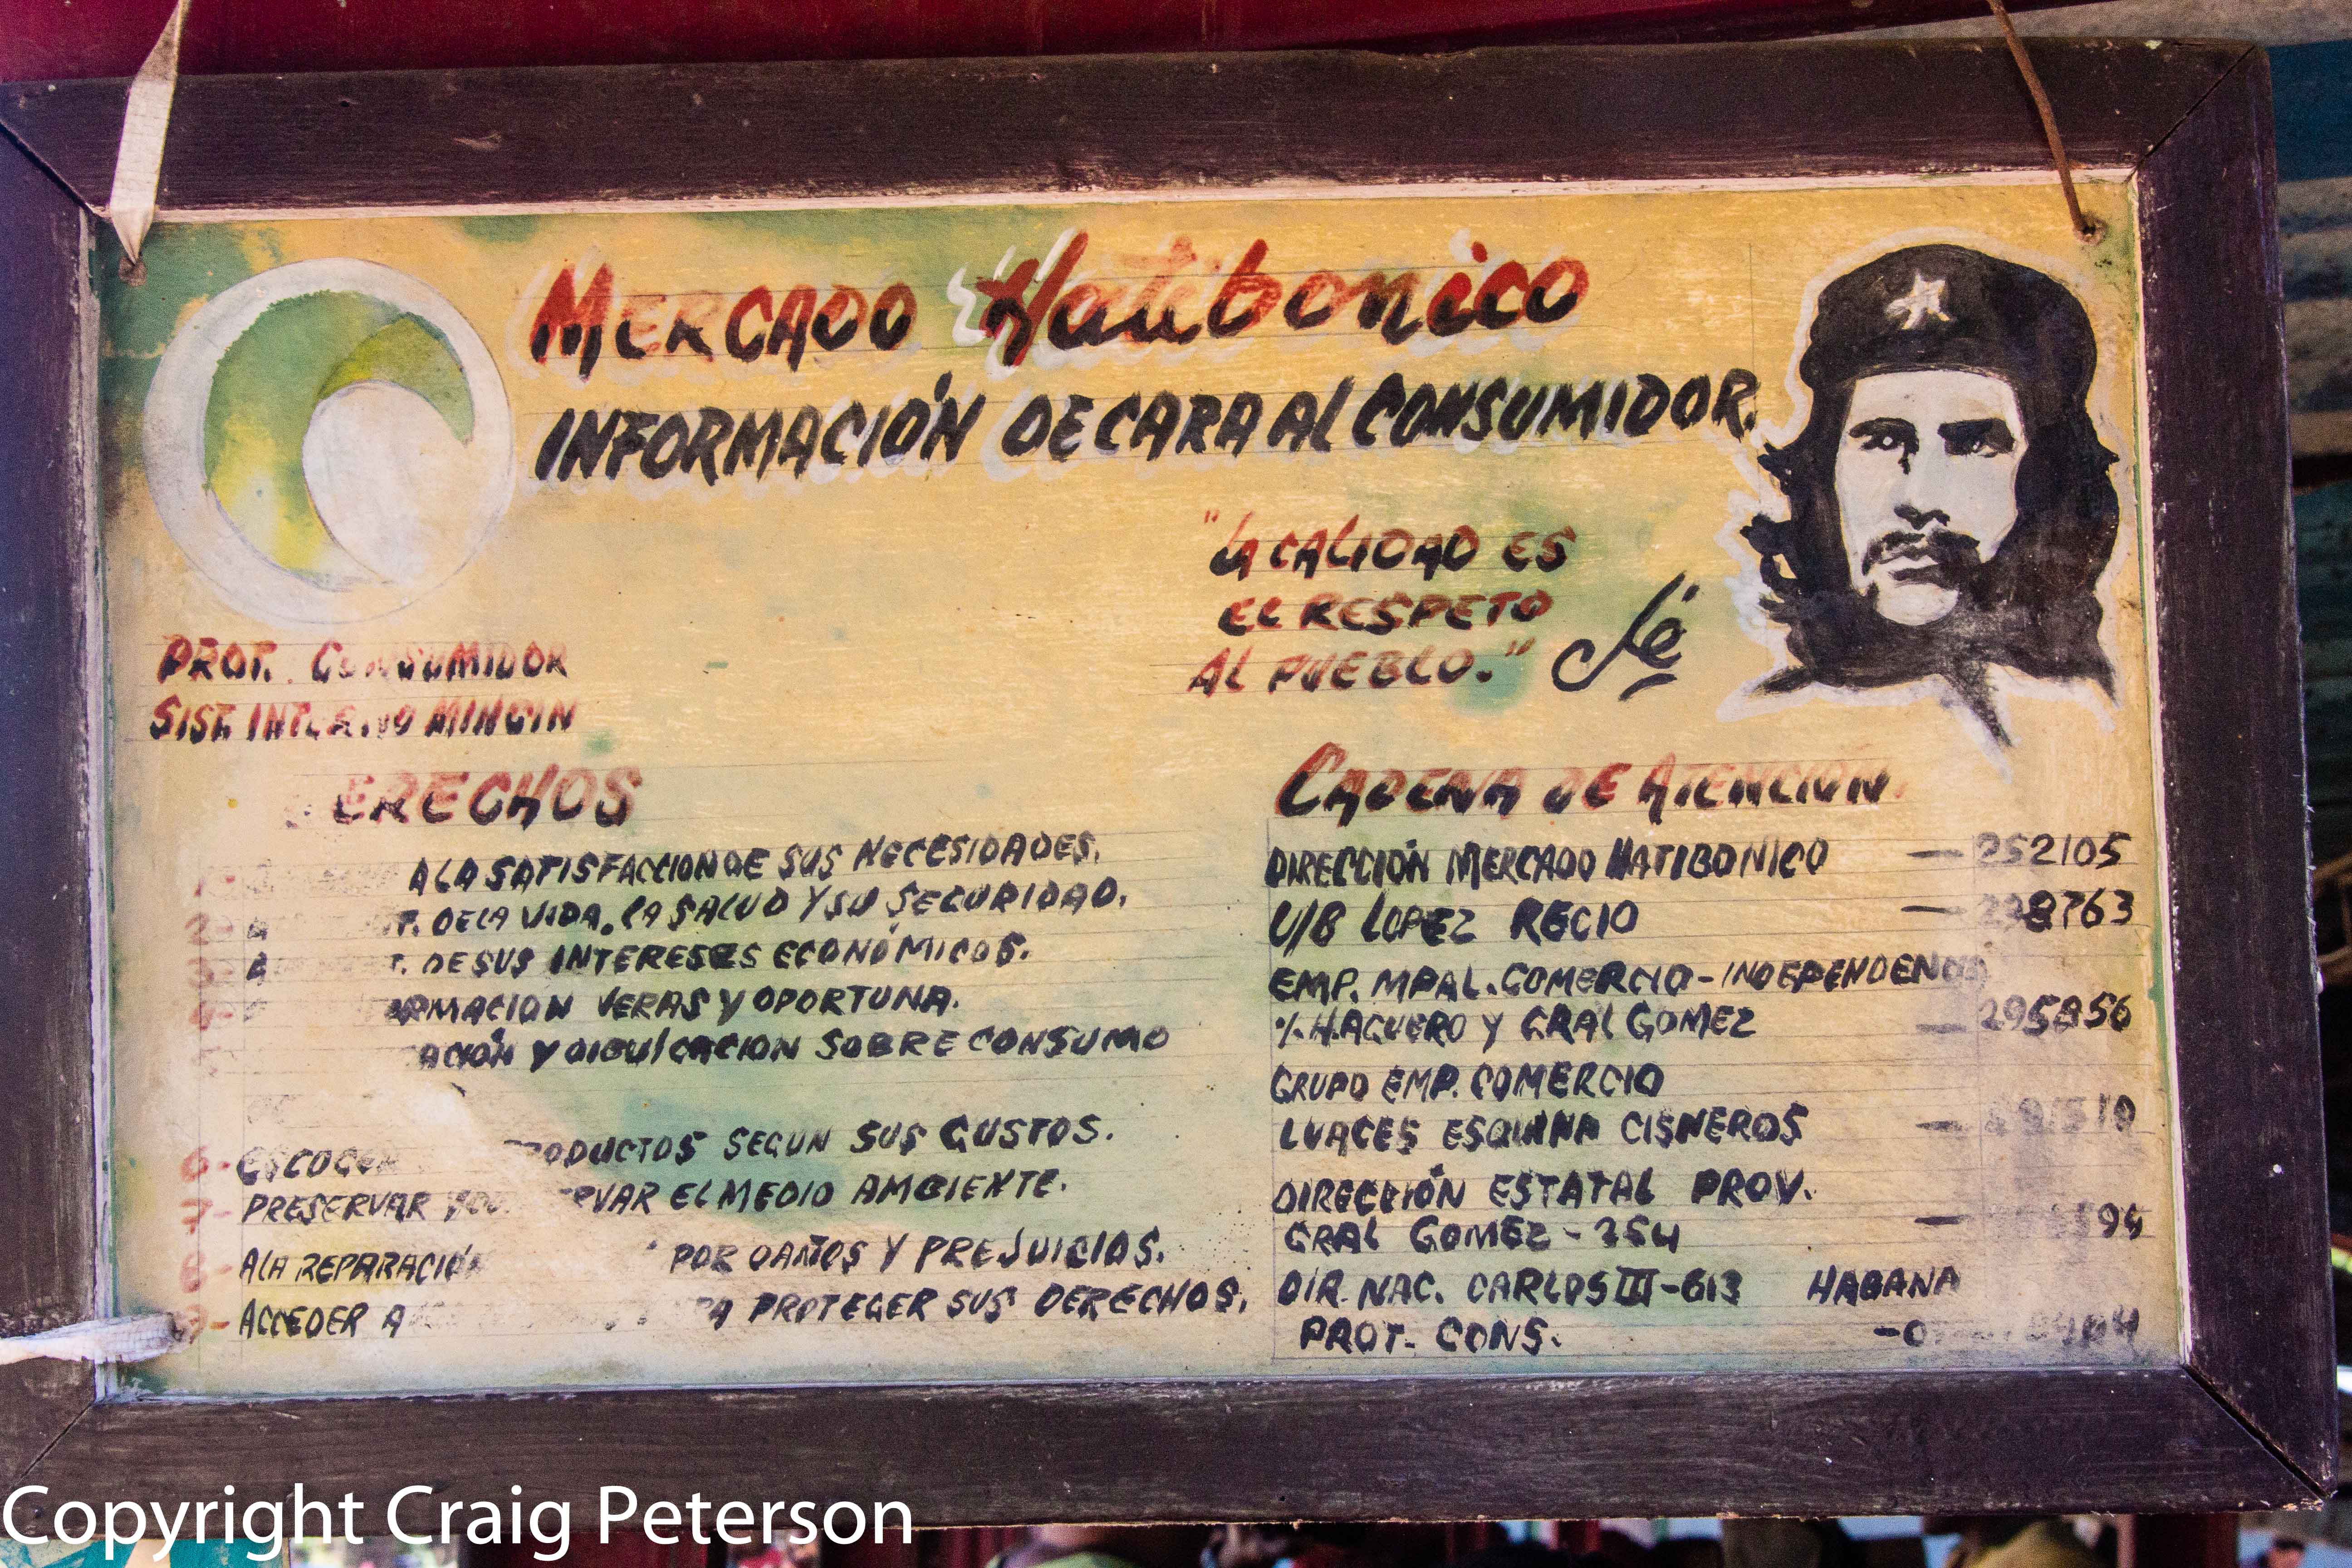 MERCADO Hatibonico
INFORMACIÓN DE CARA AL CONSUMIDOR.
"LA CALIDAD ES
EL RESPETO
AL PUEBLO." Che
PROT. CONSUMIDOR
SIST. INTERNO MINCIN
ERECHOS
A LA SATISFACCION DE SUS NECESIDADES.
2- A T. DE LA VIDA, LA SALUD Y SU SEGURIDAD.
3- A T. DE SUS INTERESES ECONÓMICOS.
4- RMACION VERAS Y OPORTUNA.
ACIÓN Y DIBULCACION SOBRE CONSUMO
6- ESCOGER ODUCTOS SEGUN SUS GUSTOS.
7- PRESERVAR Y RVAR EL MEDIO AMBIENTE.
8- A LA REPARACIÓN POR DAÑOS Y PREJUICIOS.
9- ACCEDER A RA PROTEGER SUS DERECHOS.
CADENA DE ATENCION.
DIRECCIÓN MERCADO HATIBONICO — 252105
U/B LOPEZ RECIO — 8763
EMP. MPAL. COMERCIO - INDEPENDENCIA
%. H. AGUERO Y GRAL GOMEZ — 295856
GRUPO EMP. COMERCIO
LUACES ESQUINA CISNEROS —
DIRECCIÓN ESTATAL PROV.
GRAL GOMEZ - 254 — 94
DIR. NAC. CARLOS III - 613 HABANA
PROT. CONS.
Copyright Craig Peterson